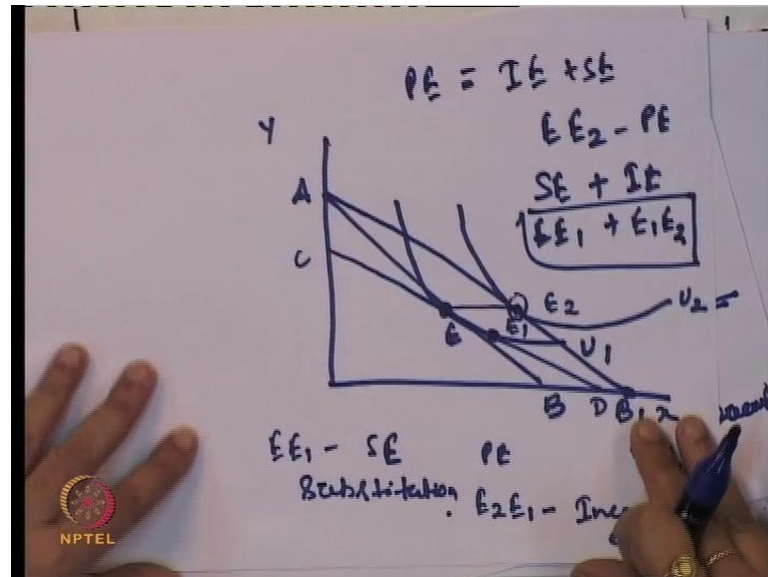 PE = IE + SE
EE2 - PE
SE + IE
EE1 + E1E2
Y
A
C
E
E1
E2
U2 =
U1
B D B1 x
EE1 - SE PE
Substitution
E2E1 - Inc
NPTEL